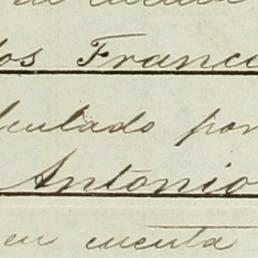 los Franc
culado por
Antonio
en cuenta